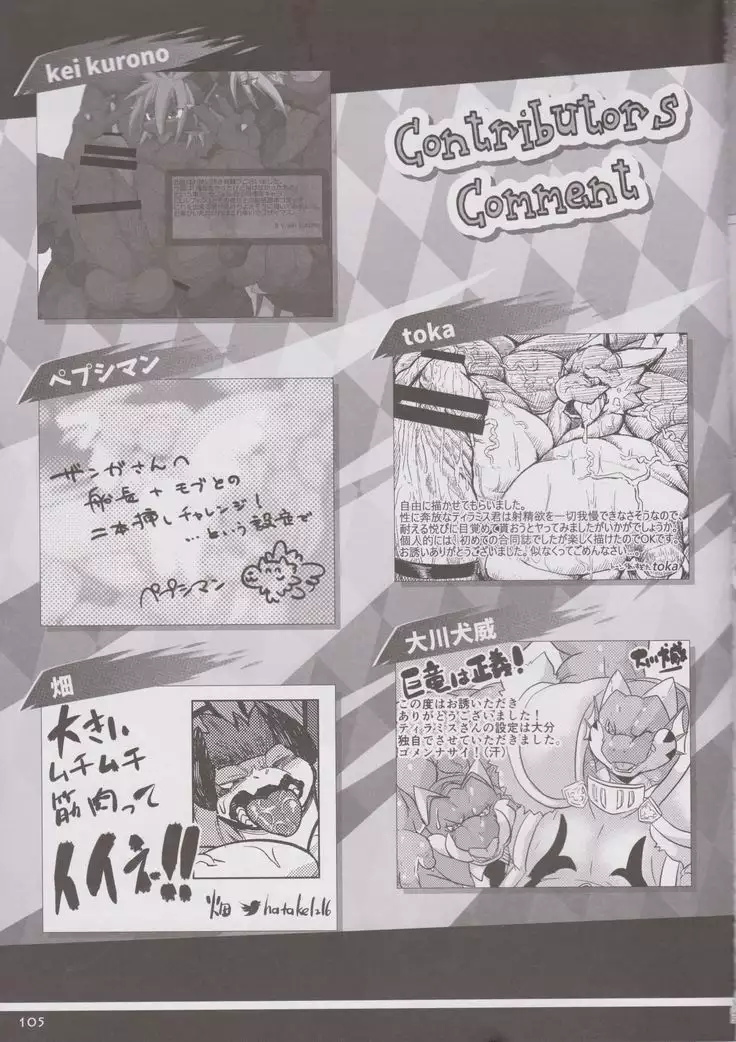 kei kurono
Contributors
Comment
toka
自由に描かせてもらいました。
性に奔放なティラミス君は射精欲を一切我慢できなさそうなので、
耐える悦びに目覚めて貰おうとヤってみましたがいかがでしょうか。
個人的には、初めての合同誌でしたが楽しく描けたのでOKです。
お誘いありがとうございました。似なくってごめんなさい…。
toka
ペプシマン
ザンガさんへ
船長+モブとの
二本挿しチャレンジ!
…という設定で
ペプシマン
大川犬威
巨竜は正義!
大川犬威
この度はお誘いただき
ありがとうございました!
ティラミスさんの設定は大分
独自でさせていただきました。
ゴメンナサイ!(汗)
畑
大きい
ムチムチ
筋肉って
イイネ!!
畑 hatake1216
105